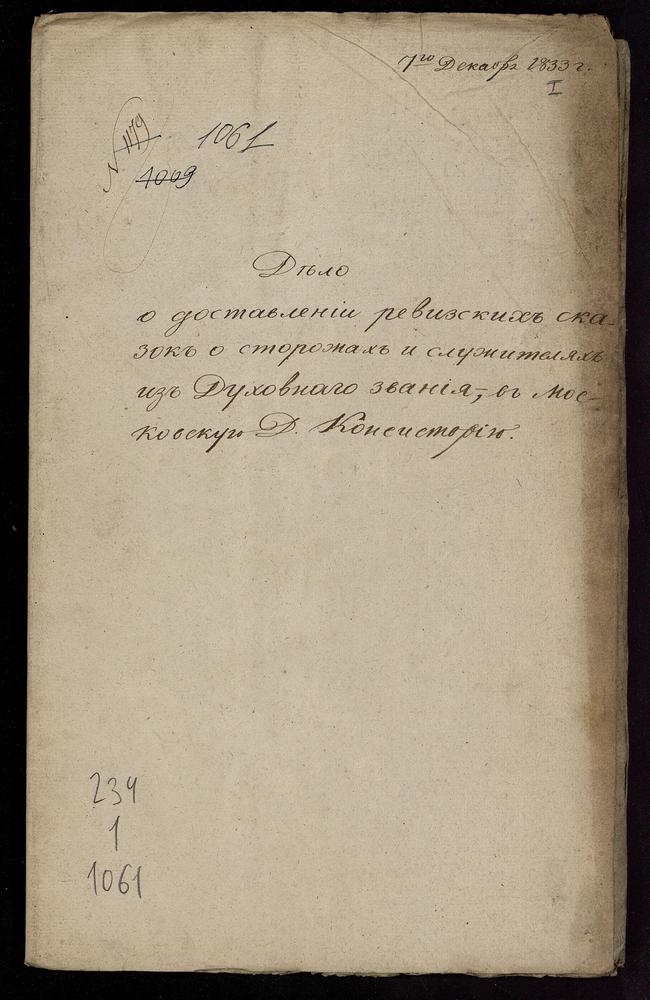 7го Декабр 1833 г.
I
N 1179
1061
1069
Дѣло
о доставленіи ревизскихъ ска-
зокъ о сторожахъ и служителяхъ
изъ Духовнаго званія, въ Мос-
ковскую Д. Консисторію.
234
1
1061